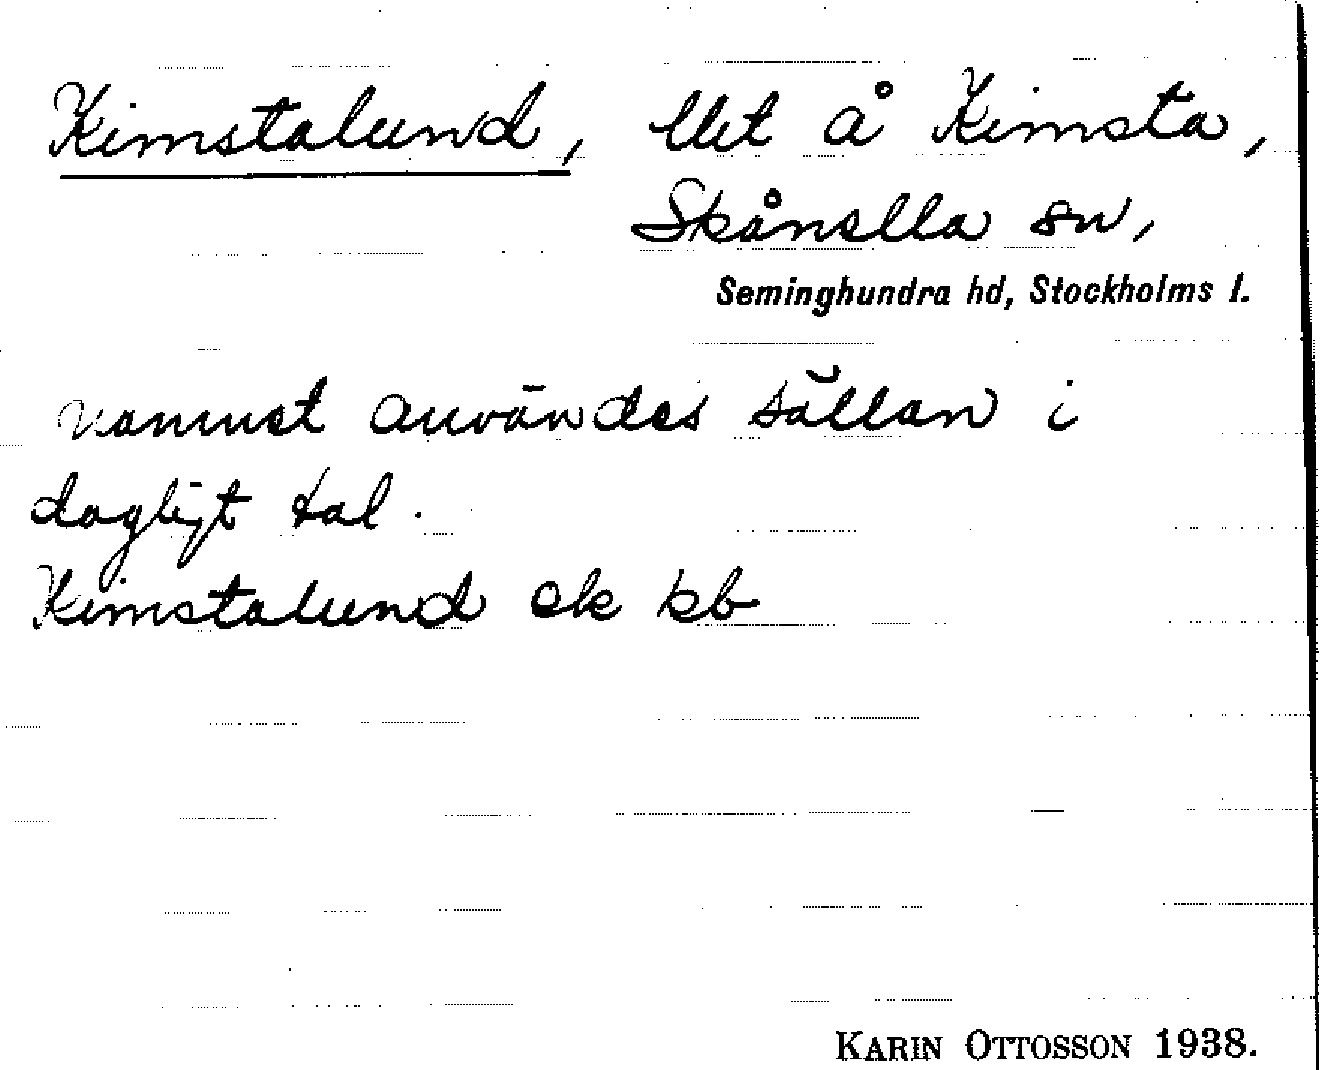 Kimstalund, llet å Kimsta,
Skånella sn,
Seminghundra hd, Stockholms l.
namnet användes sällan i
dagligt tal.
Kimstalund ek kb
KARIN OTTOSSON 1938.